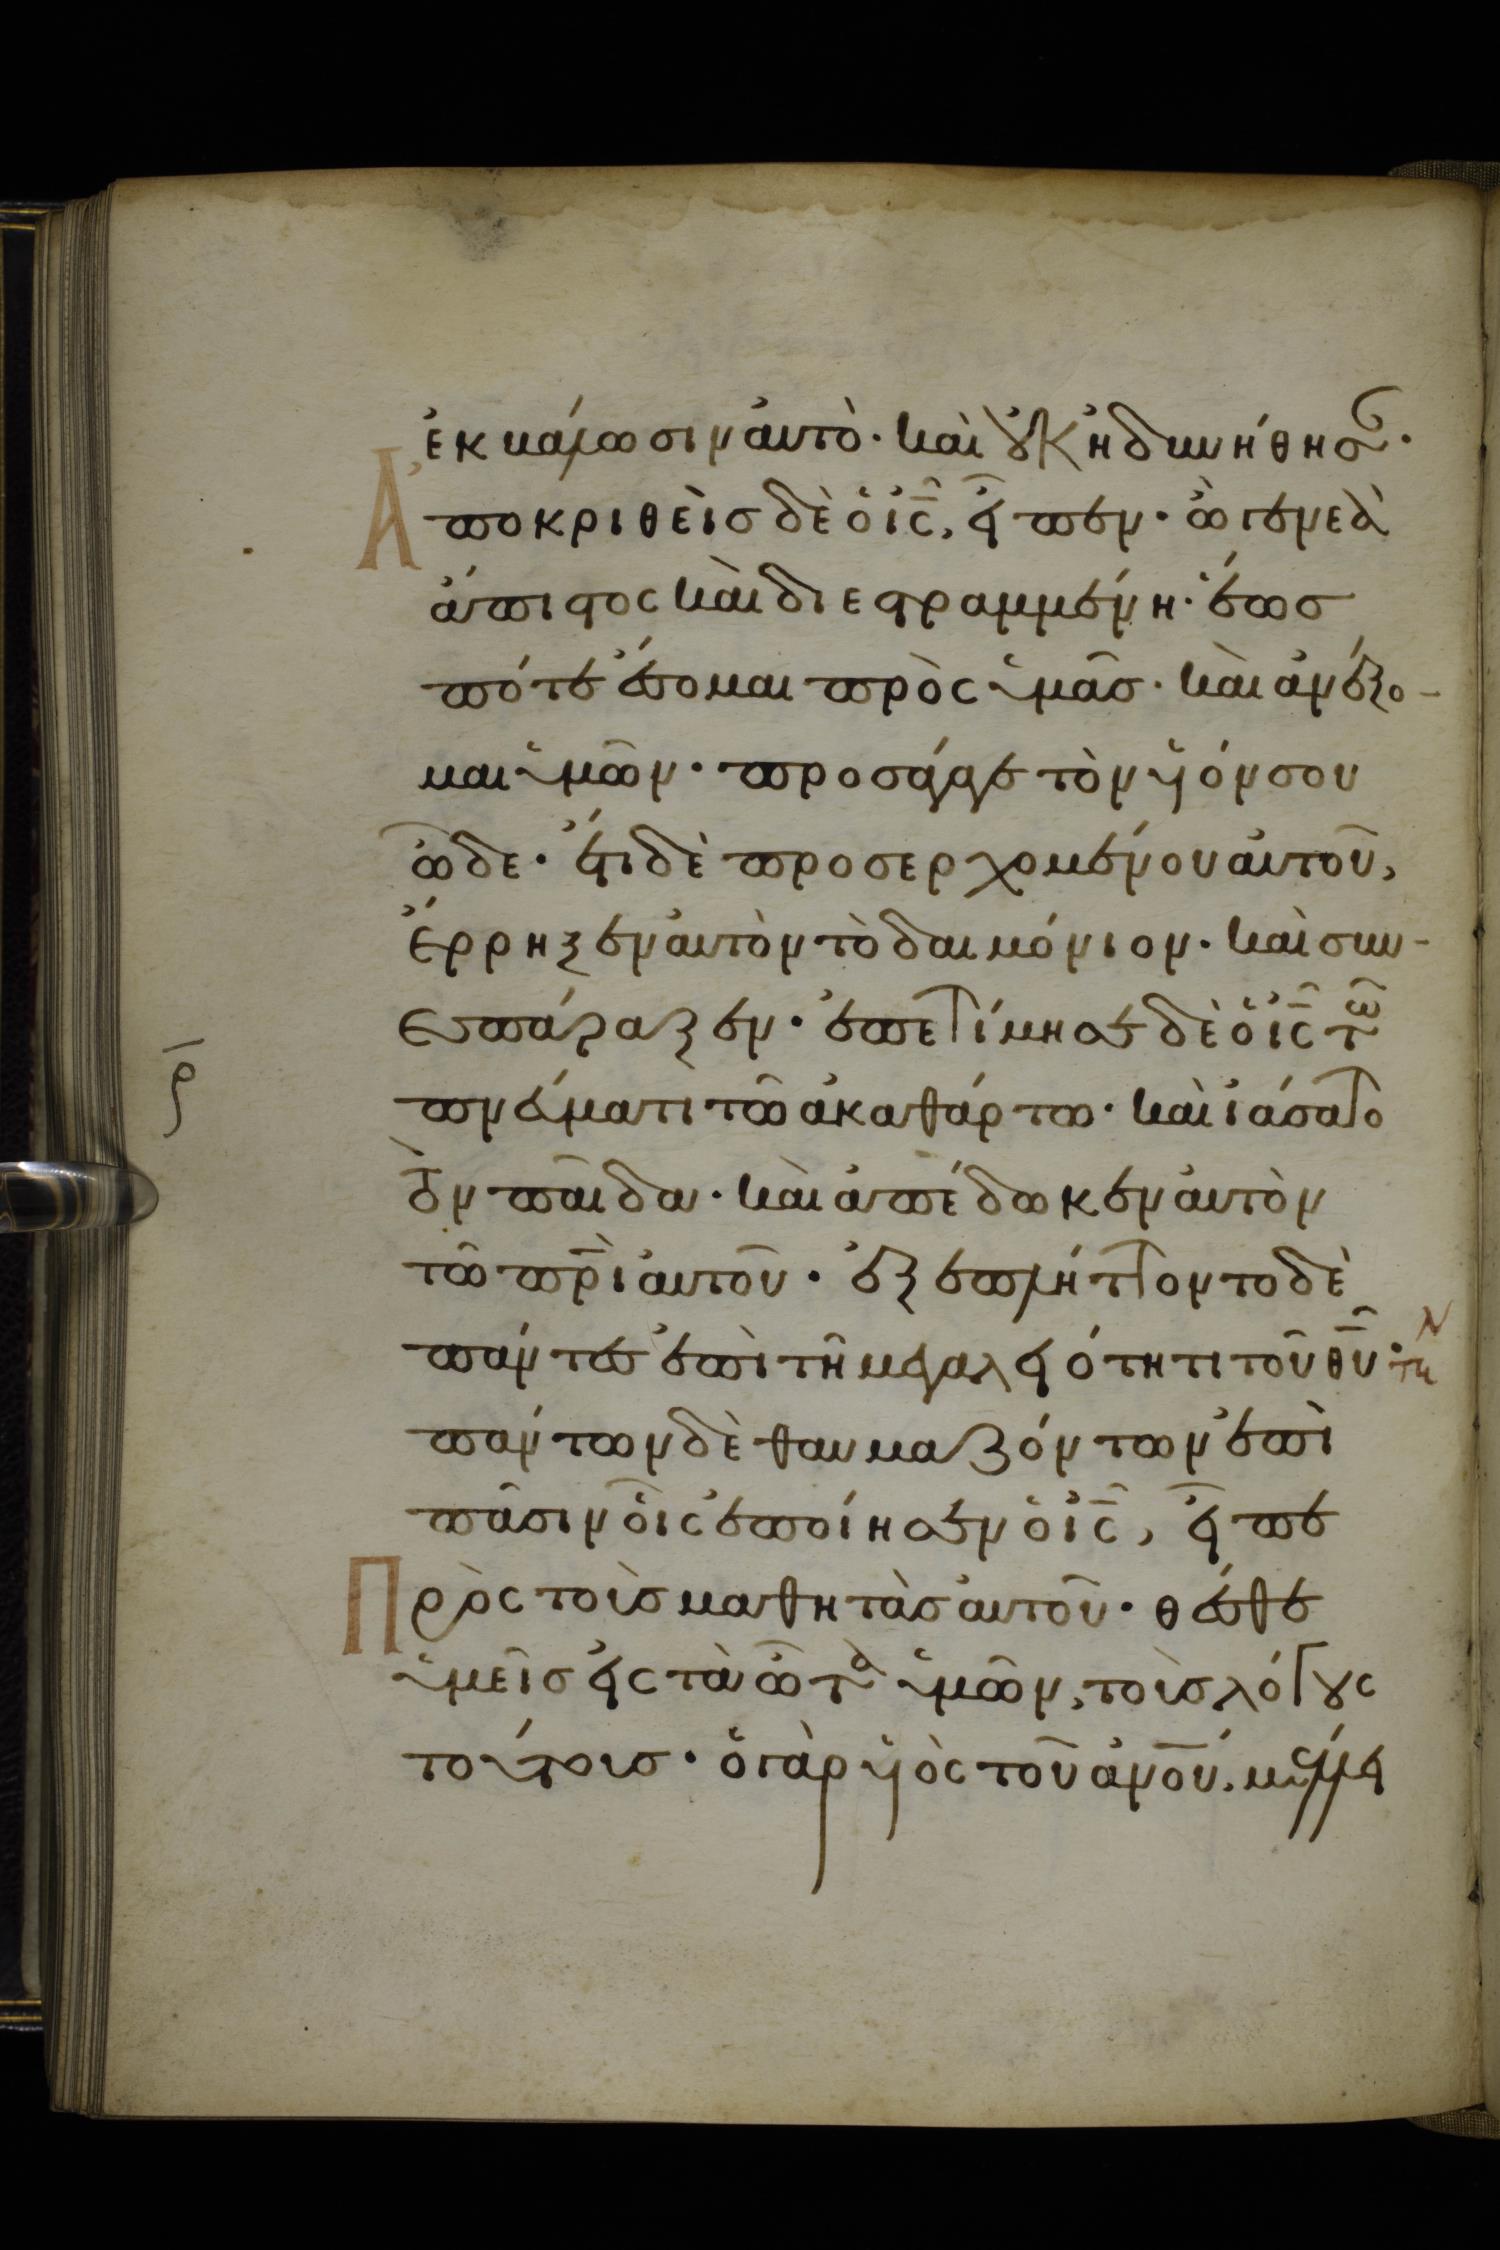 ἐκβάλωσιν ἀυτὸ· καὶ ȣ̓κ ἠδυνήθησαν·
Ἀποκριθεὶσ δὲ ὁ ἰ̅ς̅, εἶπεν· ὦ γενεὰ
ἄπιστος καὶ διεστραμμένη· ἕωσ
πότε ἔσομαι πρὸς ὑμᾶσ· καὶ ἀνέξο-
μαι ὑμῶν· προσάγαγε τὸν υἱόν σου
ὧδε· ἔτι δὲ προσερχομένου ἀυτοῦ,
ἔρρηξεν ἀυτὸν τὸ δαιμόνιον· καὶ συν-
εσπάραξεν· ἐπετίμησε δὲ ὁ ἰ̅ς̅ τῶ
ρ
πνεύματι τῶ ἀκαθάρτω· καὶ ἰάσατο
τὸν παῖδα· καὶ ἀπέδωκεν ἀυτὸν
τῶ π̅ρ̅ὶ ἀυτοῦ· ἐξεπλήττοντο δὲ
πάντεσ ἐπὶ τῆ μεγαλειότητι τοῦ θ̅υ̅·
πάντων δὲ θαυμαζόντων ἐπὶ
πᾶσιν οἷς ἐποίησεν ὁ ἰ̅ς̅, εἶπε
Πρὸς τοὺσ μαθητὰσ ἀυτοῦ· θέσθε
ὑμεῖσ εἰς τὰ ὦτα ὑμῶν, τοὺσ λόγȣς
τούτουσ· ὁ γὰρ υἱὸς τοῦ ἀ̅ν̅ο̅υ̅, μέλλει